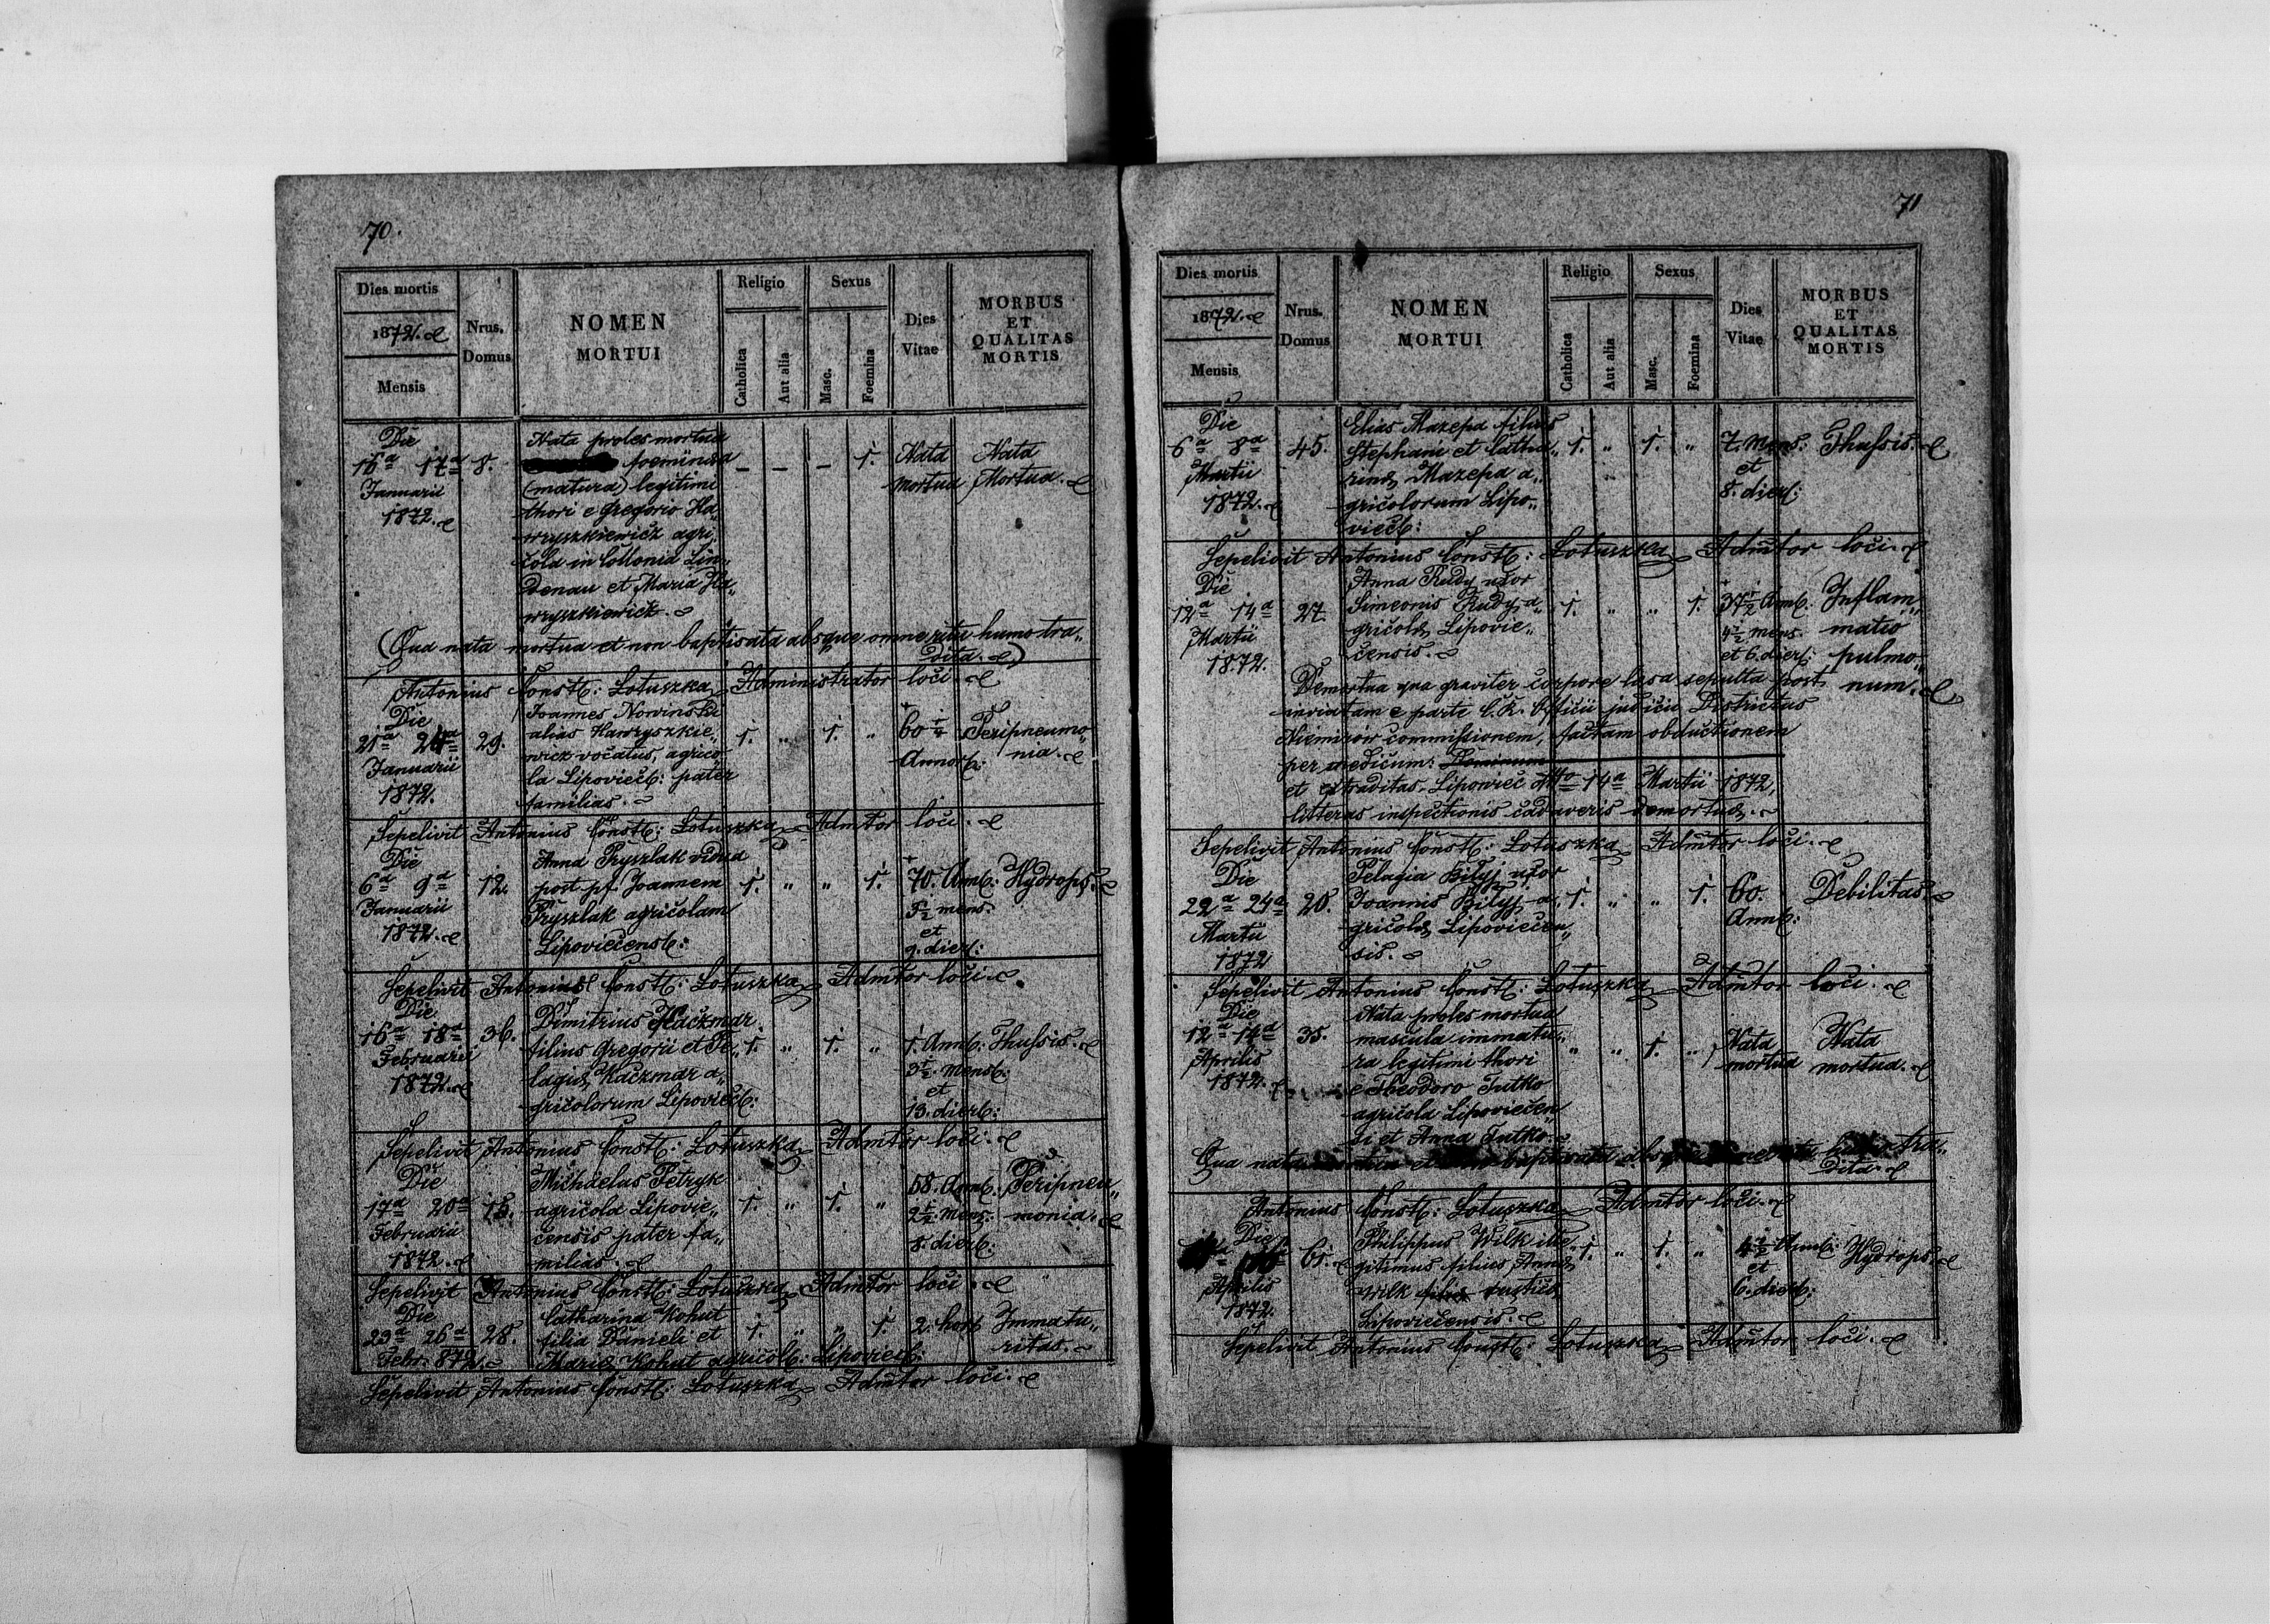 70.
Dies mortis
1872.
Mensis
Nrus. Domus
NOMEN
MORTUI
Religio
Catholica
Aut alia
Sexus
Masc.
Foemina
Dies
Vitae
MORBUS
ET
QUALITAS
MORTIS
Die
16a 17a
Januarii
1872.
8.
Nata proles mortua
foeminea
(matura) legitimi
thori e Gregorio Ha„
wryszkiewicz agri„
cola in Collonia Lin„
denau et Maria Ha„
wryszkiewicz.
– – – 1.
Nata
mortua
Nata
Mortua.
(Qua nata mortua et non baptisata absque omne ritu humo tra„
dita.)
Antonius Const: Lotuszka Administrator loci.
Die
21a 24a
Januarii
1872.
29.
Joannes Nowinski
alias Hawryszkie„
wicz vocatus, agrico„
la Lipoviec: pater
familias.
1. „ 1. „
60
Annor:
Peripneumo„
nia.
Sepelivit Antonius Const: Lotuszka Admtor loci.
Die
6a 9a
Januarii
1872.
12.
Anna Pryszlak vidua
post pf. Joannem
Pryszlak agricolam
Lipoviecens:
1. „ „ 1.
70. Ann:
5½ mens:
et
9. dier:
Hydrops.
Sepelivit Antonius Const: Lotuszka Admtor loci.
Die
16a 18a
Februarii
1872.
36.
Dimitrius Kaczmar
filius Gregorii et Pe„
lagiæ Kaczmar a„
gricolorum Lipoviec:
1. „ 1. „
1. Ann:
3½. mens:
et
13. dier:
Thussis.
Sepelivit Antonius Const: Lotuszka Admtor loci.
Die
17a 20a
Februarii
1872.
Michaelus Petryk
agricola Lipovie„
censis pater fa„
milias.
1. „ 1. „
58. Ann:
2½. mens:
8. dier:
Peripneu„
monia.
Sepelivit Antonius Const: Lotuszka Admtor loci.
Die
23a 26a
Febr. 872.
28.
Catharina Kohut
filia Danieli et
Mariæ Kohut agricol: Lipoviec:
1. „ „ 1.
2. hor:
Immatu„
ritas.
Sepelivit Antonius Const: Lotuszka Admtor loci.
71
Dies mortis
1872.
Mensis
Nrus. Domus
NOMEN
MORTUI
Religio
Catholica
Aut alia
Sexus
Masc.
Foemina
Dies
Vitae
MORBUS
ET
QUALITAS
MORTIS
Die
6a 8a
Martii
1872.
45.
Elias Mazepa filius
Stephani et Catha„
rinæ Mazepa a„
gricolorum Lipo„
viec:
1. „ 1. „
7. Mens:
et
8. dier:
Thussis.
Sepelivit Antonius Const: Lotuszka Admtor loci.
Die
12a 14a
Martii
1872.
27.
Anna Rudy uxor
Simeonis Rudy, a„
gricolæ Lipovie„
censis.
1. „ „ 1.
37½ Ann:
4½ mens.
et 6. dier:
Inflam„
matio
pulmo„
num.
Demortua qua graviter corpore læsa sepulta post
inviatam e parte C. R. Officii judicii Districtus
Niemirow commissionem, factam obductionem
per medicum:
et extraditas Lipowiec dtto 14a Martii 1872,
litteras inspectionis cadaveris demortuæ.
Sepelivit Antonius Const: Lotuszka Admtor loci.
Die
22a 24a
Martii
1872
20.
Pelagia Bilyj uxor
Joannis Bilyj a„
gricolæ Lipoviecen„
sis.
1. „ „ 1.
60.
Ann:
Debilitas.
Sepelivit Antonius Const: Lotuszka Admtor loci.
Die
12a 14a
Aprilis
1872.
35.
Nata proles mortua
mascula immatu„
ra legitimi thori
e Theodoro Tutko
agricola Lipoviecen„
si et Anna Tutko.
„ „ 1. „
Nata
mortua
Nata
mortua.
Qua nata et baptisata tra„
dita.
Antonius Const: Lotuszka Admtor loci.
Die
Aprilis
1872.
61.
Philippus Wilk ille„
gitimus filius Annæ
Wilk rusticæ
Lipoviecensis.
1. „ 1. „
4½ Ann:
et
6. dier:
Hydrops.
Sepelivit Antonius Const: Lotuszka Admtor loci.